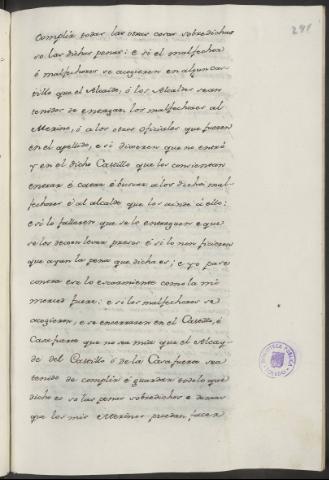 291
complir todas las otras cosas sobredichas
so las dichas penas: e si el malfechor
ó malfechores se acogieren en algun cas-
tillo que el Alcaide, ó los Alcaldes sean
tenidos de entregar los malfechores al
Merino, ó a los otros oficiales que fueren
en el apellido, e si dixeren que no entró
y en el dicho Castillo que los consientan
entrar é catar é buscar a los dichos mal-
fechores é al alcalde que los ainde á ello:
e si lo fallaren que se lo entreguen e que
se los dexen levar presos é si lo non ficieren
que ayan la pena que dicha es; e yo pase
contra ese lo esaramiento como la mi
merced fuere: e si los malfechores se
acogieren, e se encerraren en el Castillo, ó
Casa fuerte que no sea mia que el Alcay-
de del Castillo ó de la Casa fuerte sea
tenido de complir é guardar todo lo que
dicho es so las penas sobredichas e demas
que los mis Merinos puedan facer
BIBLIOTECA PÚBLICA
TOLEDO